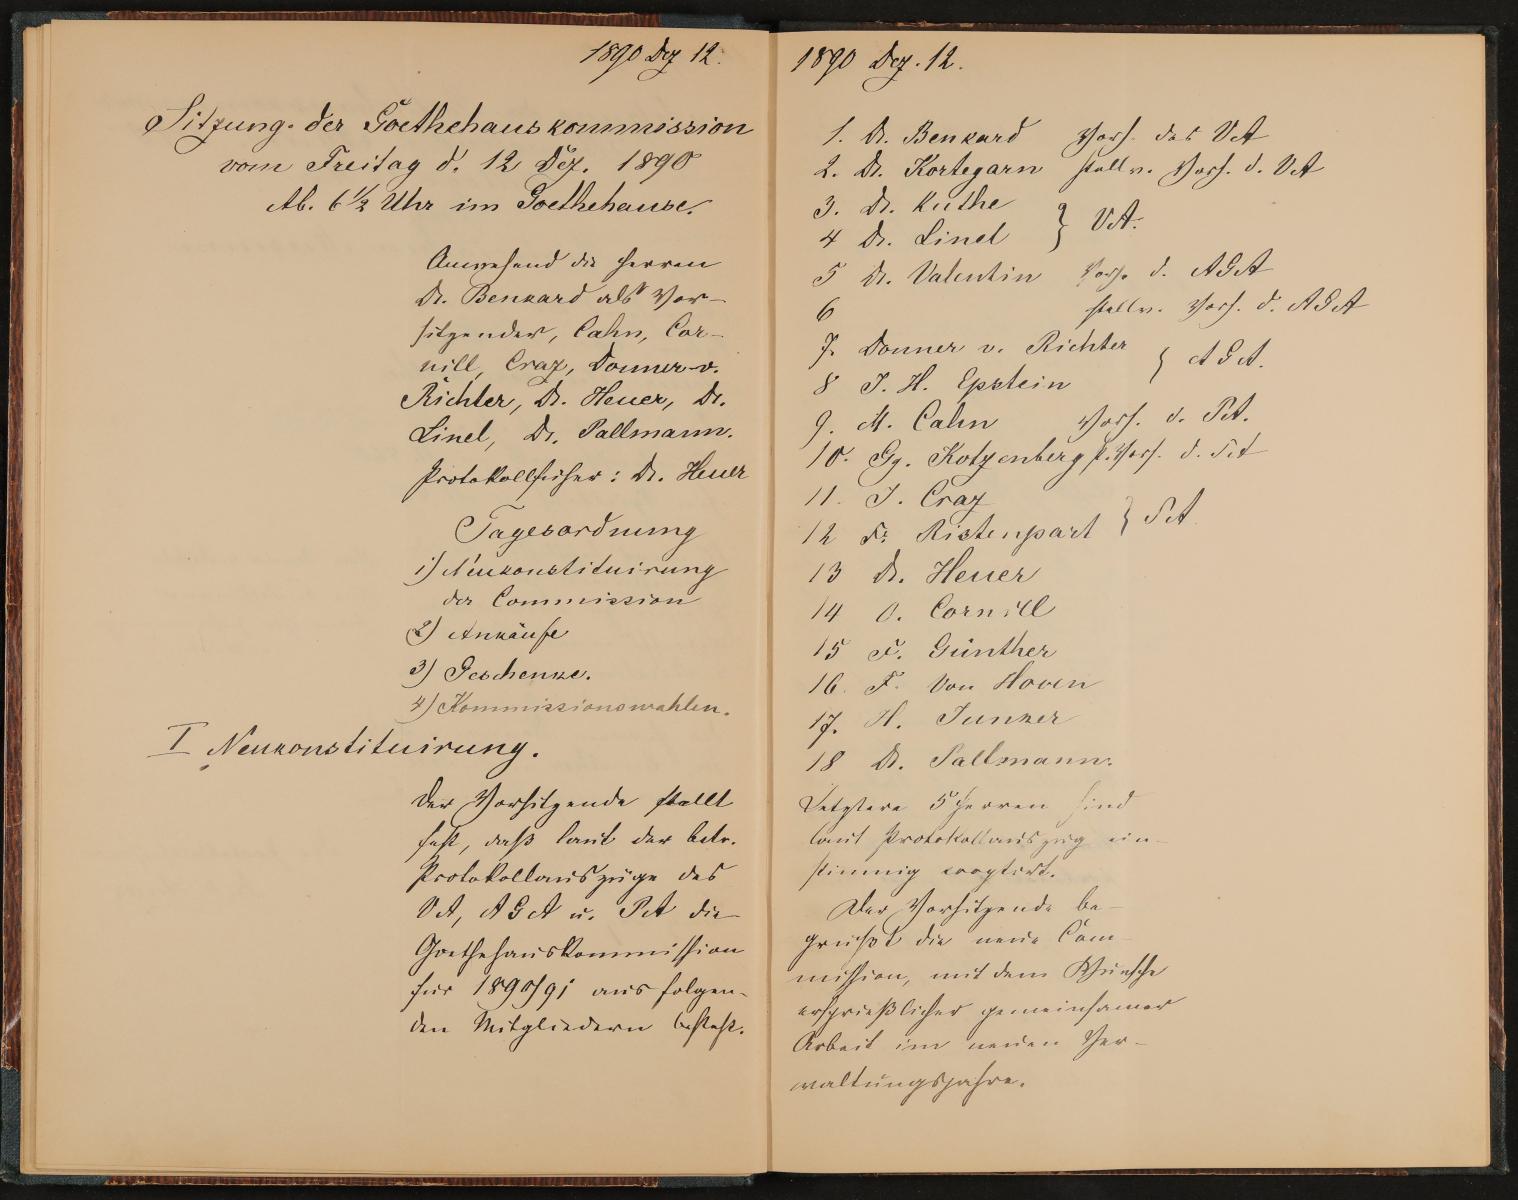 1890 Dez 12.
Sitzung der Goethehauskommission
vom Freitag d. 12 Dez. 1890
Ab. 6 1/2 Uhr im Goethehause.
Anwesend die Herren
Dr. Benkard als Vor-
sitzender, Cahn, Cor-
nill, Craz, Donner-v.
Richter, Dr. Heuer, Dr.
Linel, Dr. Pallmann.
Protokollführer: Dr. Heuer
Tagesordnung
1) Neukonstituirung
der Commission
2) Ankäufe
3) Geschenke.
4) Kommissionswahlen.
I Neukonstituirung.
Der Vorsitzende stellt
fest, daß laut der betr.
Protokollauszüge des
VA, AGA u. PA die
Goethehauskommission
für 1890/91 aus folgen-
den Mitgliedern besteht.
1890 Dez. 12.
1. Dr. Benkard Vors. des VA
2. Dr. Kortegarn stellv. Vors. d. VA
3. Dr. Küthe
4 Dr. Linel } VA.
5 Dr. Valentin Vors. d. AGA
6 stellv. Vors. d. AGA
7. Donner v. Richter
8 J. H. Epstein } AGA.
9. M. Cahn Vors. d. PA.
10. Gg. Kotzenberg st. Vors. d. PA
11. J. Craz
12 Fr. Ristenpart } PA
13 Dr. Heuer
14 O. Cornill
15 F. Günther
16. F. von Hoven
17. H. Junker
18 Dr. Pallmann.
Letztere 5 Herren sind
laut Protokollauszug ein-
stimmig cooptirt.
Der Vorsitzende be-
grüßt die neue Com-
mission, mit dem Wunsche
ersprießlicher gemeinsamer
Arbeit im neuen Ver-
waltungsjahre.